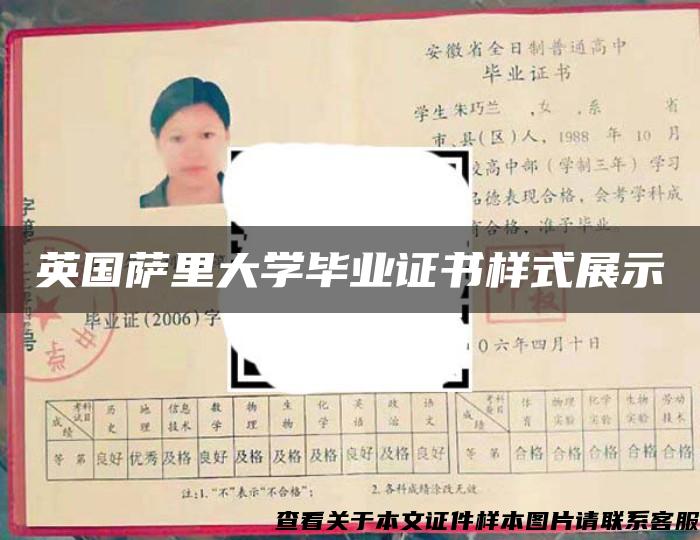 安徽省全日制普通高中
毕业证书
学生朱巧兰 ,女 ,系 省
市、县(区)人, 1988 年 10 月
校高中部(学制三年)学习
名德表现合格, 会考学科成
合格, 准予毕业。
英国萨里大学毕业证书样式展示
字第
号
毕业证(2006)字
〇六年四月十日
考试科目 历史 地理 信息技术 数学 物理 生物 化学 英语 政治 语文
成绩
等第 良好 优秀 及格 良好 及格 及格 及格 良好 良好 良好
考查科目 体育 物理实验 化学实验 生物实验 劳动技术
成绩
等第 合格 合格 合格 合格 合格
注:1."不"表示"不合格"; 2.各科成绩涂改无效
查看关于本文证件样本图片请联系客服